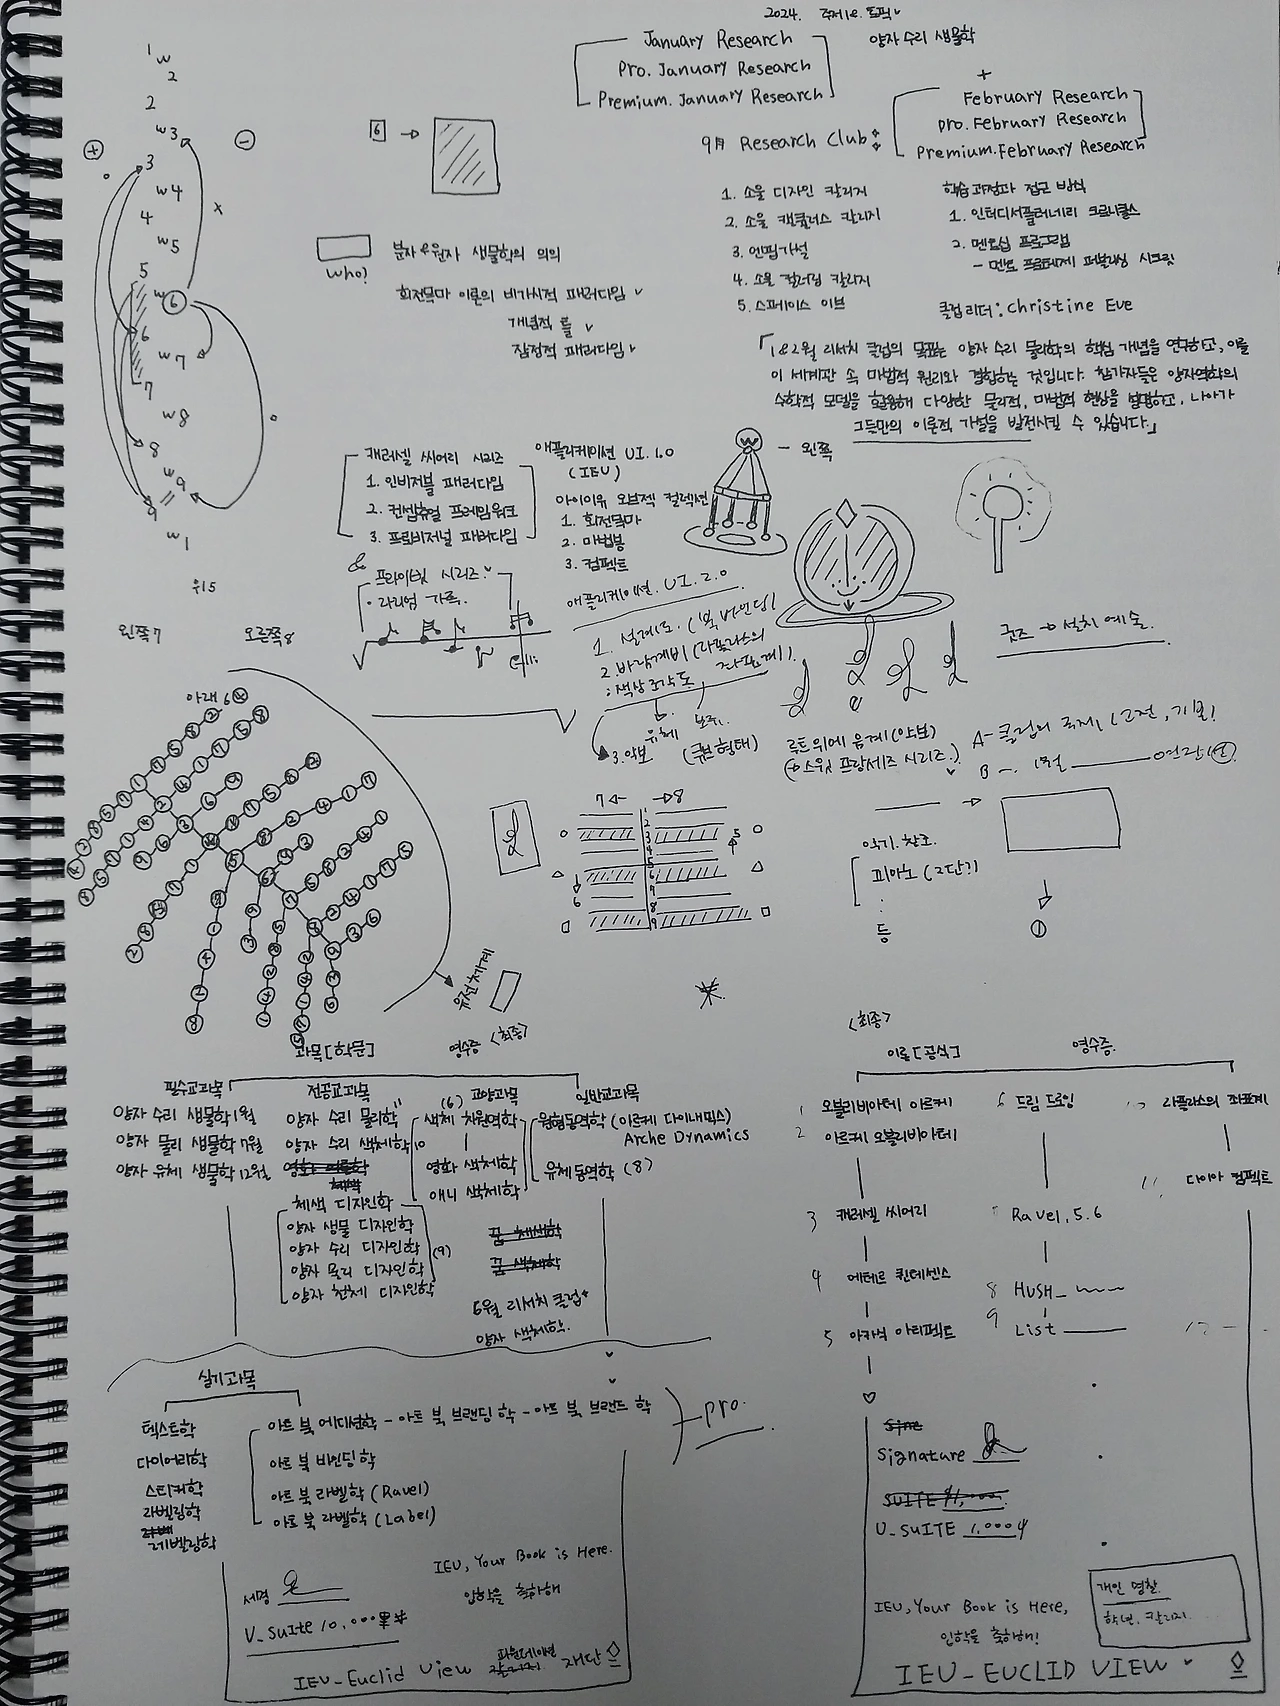 2024. 주제 1&2. 토픽
January Research
양자 수리 생물학
Pro. January Research
Premium. January Research
+
February Research
Pro. February Research
Premium. February Research
9月 Research Club
1. 소울 디자인 칼리지
2. 소울 캔큘러스 칼리지
3. 언띱가설
4. 소울 컬러링 칼리지
5. 스페이스 이브
학습 과정과 접근 방식
1. 인터디서플러네리 크로니클스
2. 멘토십 프로그램
- 멘토 프로테제 퍼블리싱 시크릿
클럽 리더 : Christine Eve
「1&2월 리서치 클럽의 목표는 양자 수리 물리학의 핵심 개념을 연구하고, 이를
이 세계관 속 마법적 원리와 결합하는 것입니다. 참가자들은 양자역학의
수학적 모델을 활용해 다양한 물리적, 마법적 현상을 설명하고, 나아가
그들만의 이론적 가설을 발전시킬 수 있습니다.」
1
w
2
2
w3
+
-
3
w4
4
w5
5
w 6
6
w7
7
w8
8
w9
9
w1
x
6
who!
분자&원자 생물학의 의의
회전목마 이론의 비가시적 패러다임
개념적 틀
잠정적 패러다임
캐러셀 씨어리 시리즈
1. 인비저블 패러다임
2. 컨셉츄얼 프레임워크
3. 프로비저널 패러다임
& 프라이빗 시리즈
애플리케이션 UI. 1.0
(IEU)
아이이유 오브젝 컬렉션
1. 회전목마
2. 마법봉
3. 컴팩트
W
- 왼쪽
애플리케이션. UI. 2.0
1. 설계도. (북 바인딩)
2. 바람개비 (라플라스의 좌표계).
: 색상 조각도
유체
3. 악보
(큐브형태)
루트위에 음계 (악보)
(스위트 프랑세즈 시리즈.)
굿즈 → 설치 예술.
왼쪽 7
오른쪽 8
아래 6
유전체계
7 ←
→ 8
1
2
3
4
5
6
7
8
9
5
6
악기. 참조.
피아노 (2단?)
:
등
①
과목 [학문]
영수증 <최종>
필수교과목
양자 수리 생물학 1월
양자 물리 생물학 11월
양자 유체 생물학 12월
전공교과목
양자 수리 물리학 11
양자 수리 색체학 10
체색 디자인학
양자 생물 디자인학
양자 수리 디자인학
양자 물리 디자인학
양자 천체 디자인학
(9)
(6) 교양과목
색체 차원역학
영화 색체학
애니 색체학
꿈 채색학
꿈 색체학
6월 리서치 클럽
양자 색체학.
일반교과목
원형동역학 (아르케 다이내믹스)
Arche Dynamics
유체동역학 (8)
실기과목
텍스트학
다이어리학
스티커학
라벨링학
레벨링학
아트 북 에디션학 - 아트 북 브랜딩 학 - 아트 북 브랜드 학
아트 북 바인딩학
아트 북 라벨학 (Ravel)
아트 북 라벨학 (Label)
pro.
IEU, Your Book is Here.
입학을 축하해
서명
U_Suite 10,000
IEU_Euclid View
파운데이션
재단
<최종>
이론 [공식]
영수증
1 오블리비아테 아르케
2 아르케 오블리비아테
3 캐러셀 씨어리
4 에테르 퀸테센스
5 아카식 아키펙트
6 드림 드로잉
7 Ravel, 5.6
8 HUSH_
9 List
10 라플라스의 좌표계
11 다이아 컴팩트
12
Signature
U_SUITE 1,000
IEU, Your Book is Here,
입학을 축하해!
개인 명찰.
학년. 칼리지.
IEU_EUCLID VIEW